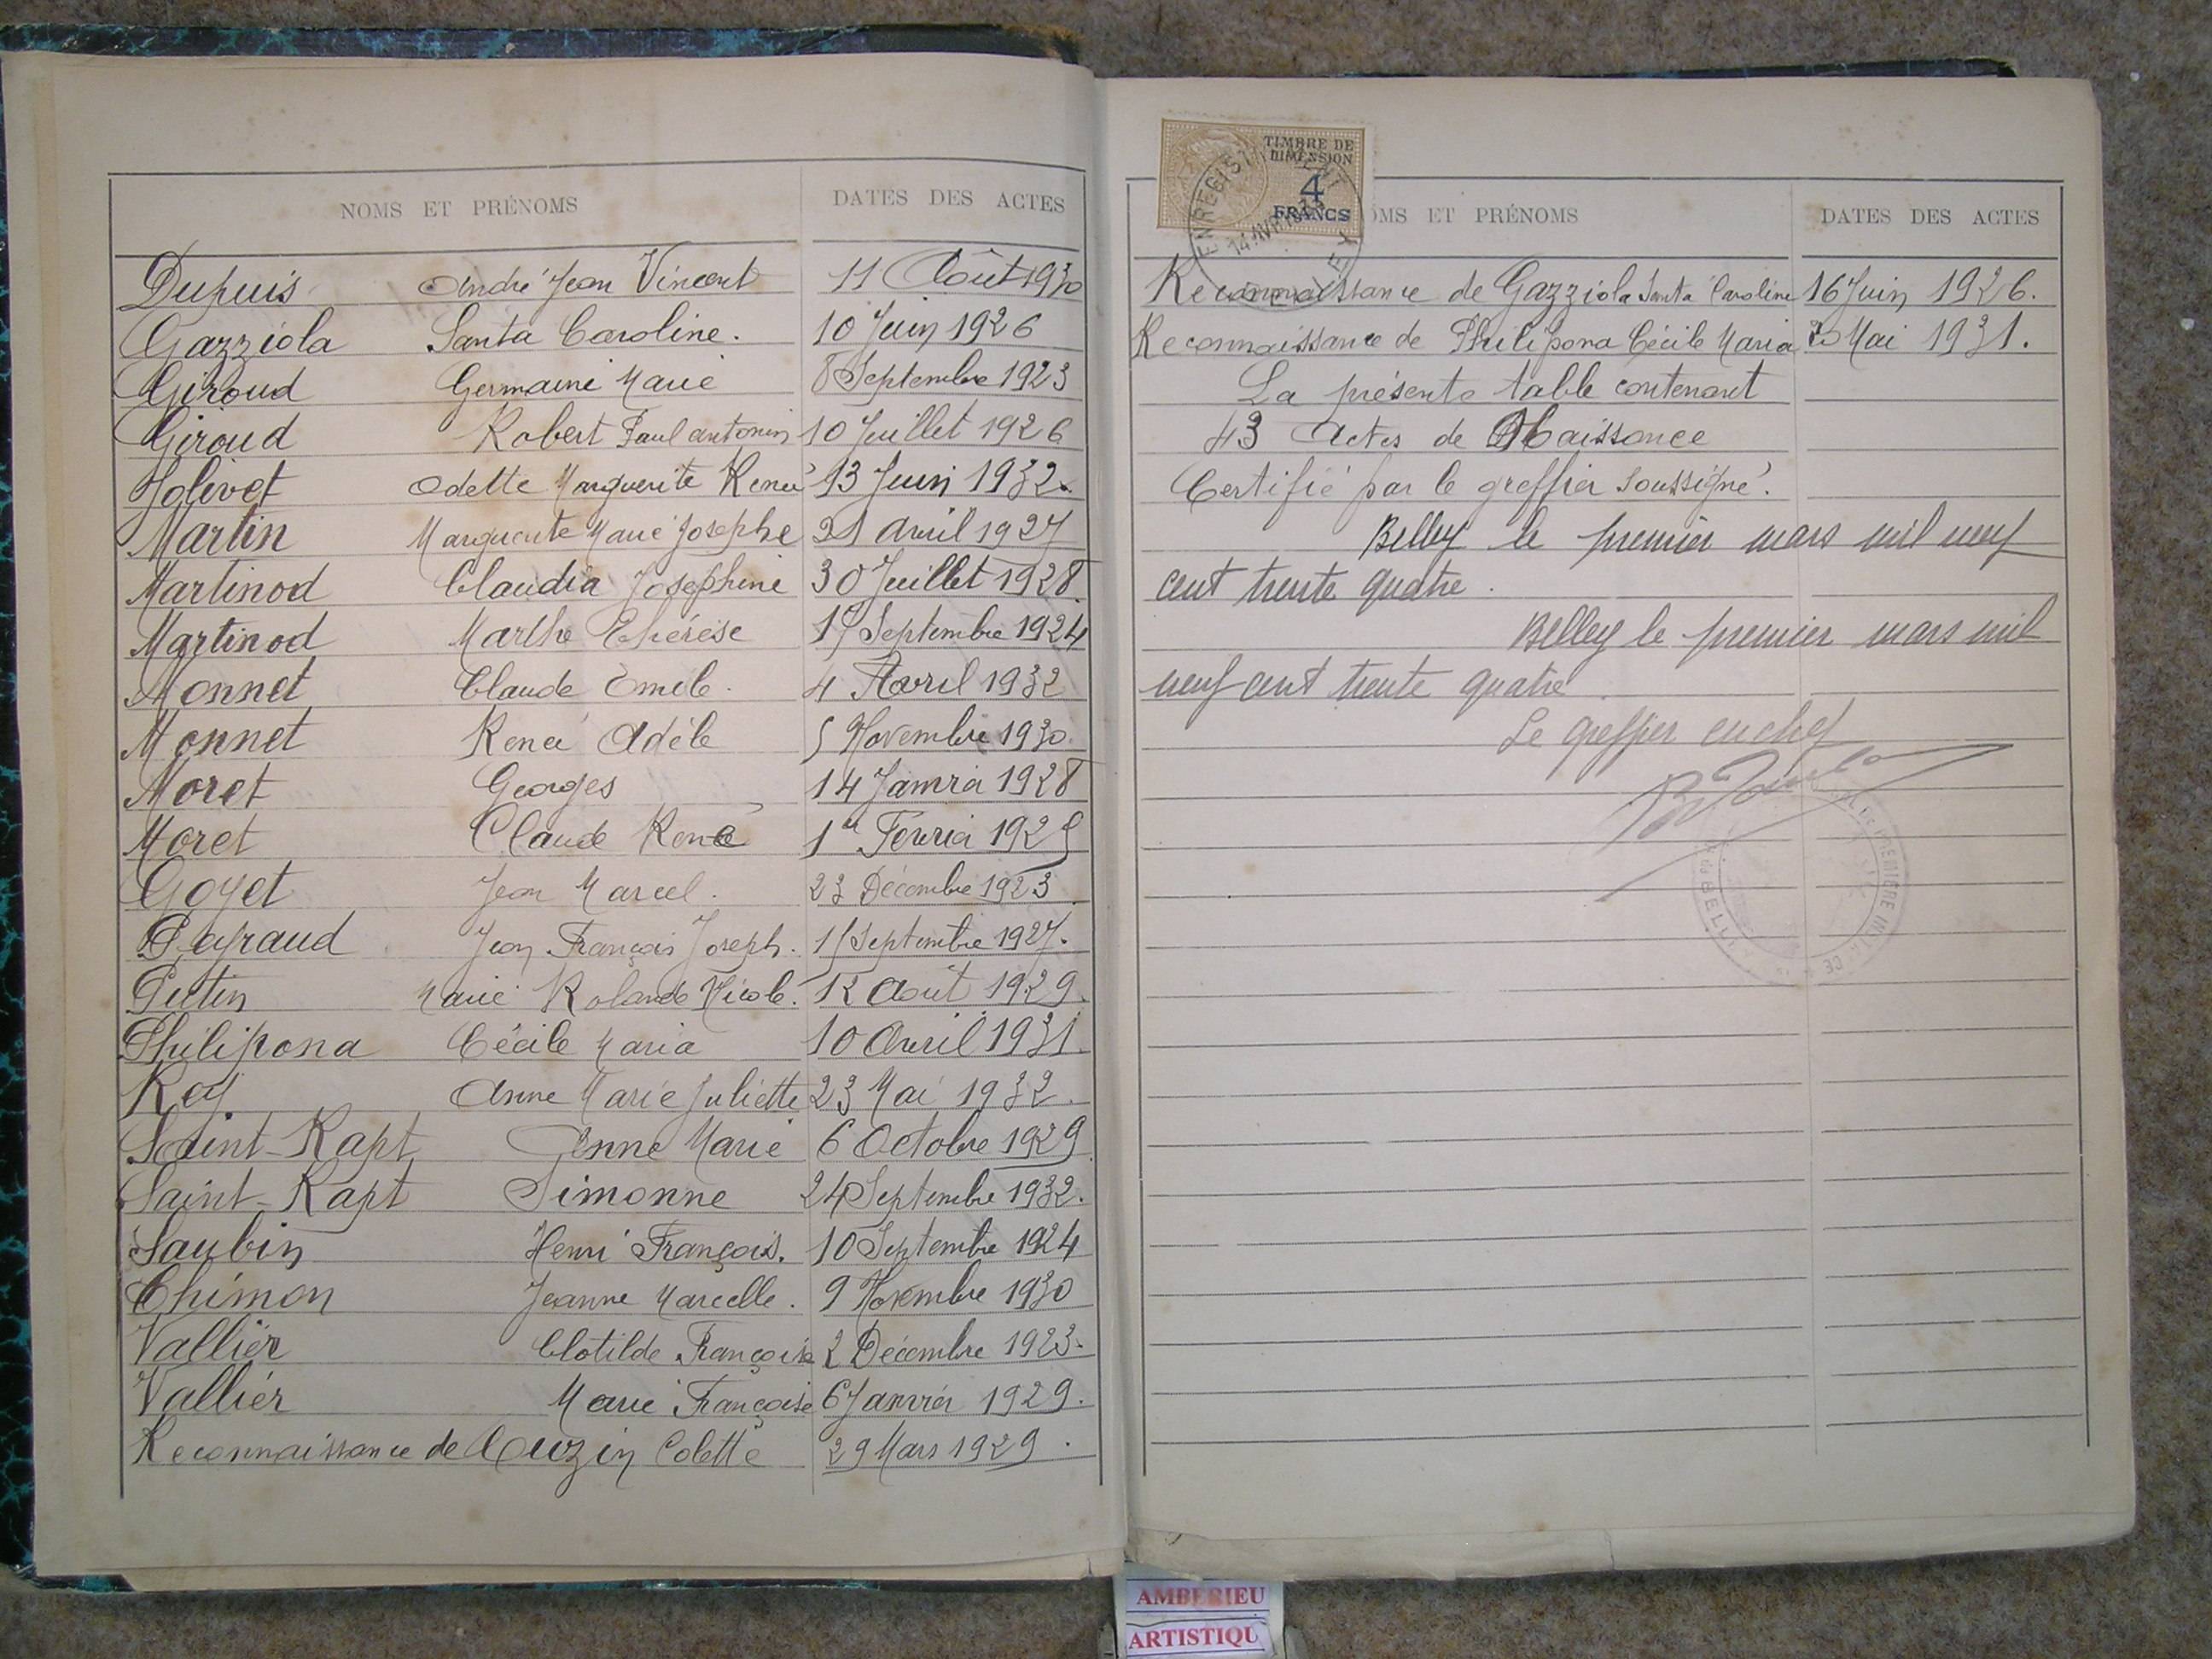 NOMS ET PRÉNOMS DATES DES ACTES
Dupuis André Jean Vincent 11 Août 1930
Gazziola Santa Caroline. 10 Juin 1926
Giroud Germaine Marie 8 Septembre 1923
Giroud Robert Paul antonin 10 Juillet 1926
Jolivet Odette Marguerite Renée 13 Juin 1932.
Martin Marguerite Marie Josephe 21 Avril 1927
Martinod Claudia Joséphine 30 Juillet 1928.
Martinod Marthe Thérèse Septembre 1924
Monnet Claude Emile. 4 Avril 1932
Monnet Renée Adèle 5 Novembre 1930.
Moret Georges 14 Janvier 1928
Moret Claude René 1er Février 1925
Goyet Jean Marcel. 23 Décembre 1923
Peyraud Jean François Joseph. 15 Septembre 1927.
Putin Marie Rolande Nicole. 12 Août 1929.
Philipona Cécile Maria 10 Avril 1931.
Rey Anne Marie Juliette 23 Mai 1932.
Saint-Rapt Anne Marie 6 Octobre 1929
Saint-Rapt Simonne 24 Septembre 1932.
Saubin Henri François. 10 Septembre 1924
Thimon Jeanne Marcelle. 9 Novembre 1930
Vallier Clotilde Françoise 2 Décembre 1923.
Vallier Marie Françoise 6 Janvier 1929.
Reconnaissance de Couzin Colette 29 Mars 1929.
TIMBRE DE
DIMENSION
4
FRANCS
ENREGISTREMENT
14 AVR
OMS ET PRÉNOMS DATES DES ACTES
Reconnaissance de Gazziola Santa Caroline 16 Juin 1926.
Reconnaissance de Philipona Cécile Maria Mai 1931.
La présente table contenant
43 Actes de Naissance
Certifié par le greffier soussigné.
Belley le premier mars mil neuf
cent trente quatre.
Belley le premier mars mil
neuf cent trente quatre
Le greffier en chef
PREMIERE INSTANCE
BELLEY
AMBERIEU
ARTISTIQU